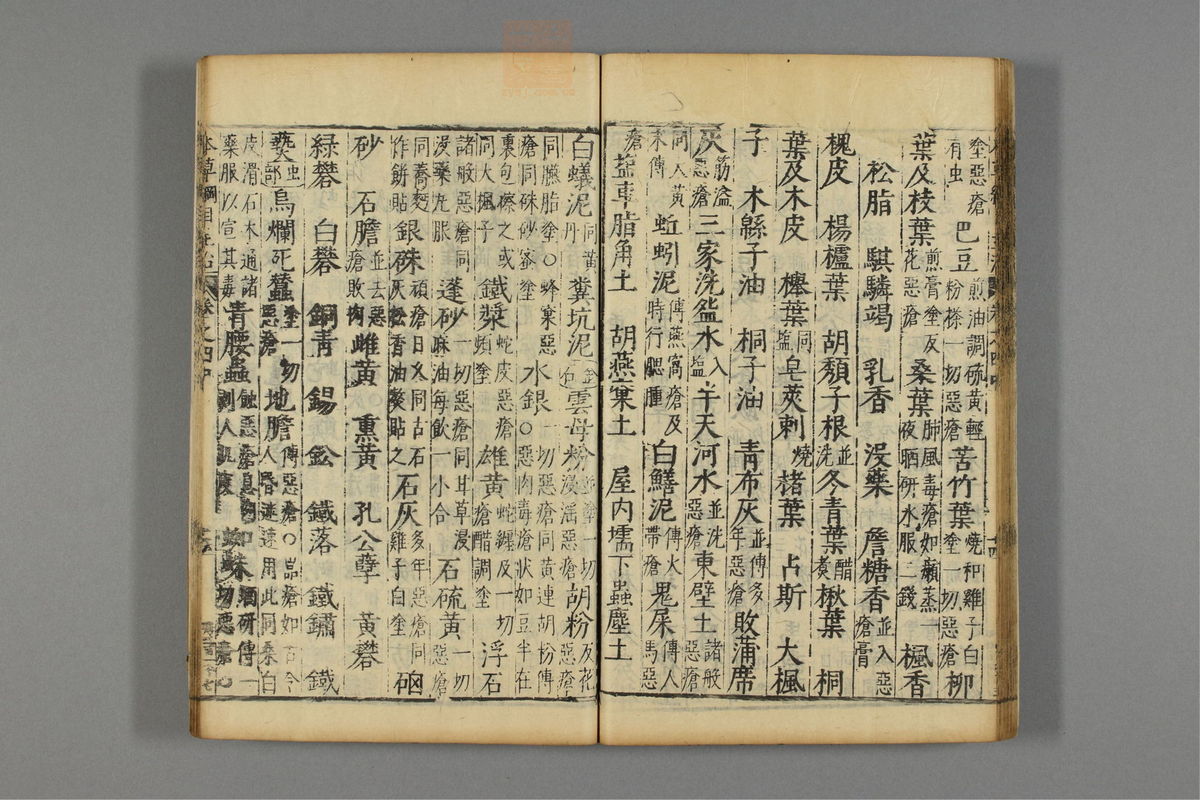 塗惡瘡有虫 巴豆 煎油調硫黃輕粉搽一切惡瘡 苦竹葉 燒和雞子白塗一切惡瘡 柳
葉及枝葉 煎膏塗反花惡瘡 桑葉 肺風毒瘡如癩蒸一夜晒研水服二錢 楓香
松脂 騏驎竭 乳香 沒藥 詹糖香 並入惡瘡膏
槐皮 楊櫨葉 胡頹子根 並洗 冬青葉 醋煮 楸葉 桐
葉及木皮 櫸葉 同塩 皂莢刺 燒 楮葉 占斯 大楓
子 木緜子油 桐子油 青布灰 並傅多年惡瘡 敗蒲席
灰 筋溢惡瘡 三家洗盌水 入塩 半天河水 並洗惡瘡 東壁土 諸般惡瘡
同大黃末傅 蚯蚓泥 傅燕窩瘡及時行腮腫 白鱔泥 傅火帶瘡 鬼屎 傅人馬惡
瘡 塩車脂角土 胡燕窠土 屋內壖下蟲塵土
白蟻泥 同黃丹 糞坑泥 雲母粉 並塗一切浸淫惡瘡 胡粉 反花惡瘡
同臙脂塗○蜂窠惡瘡同硃砂蜜塗 水銀 一切惡瘡同黃連胡粉傅○惡肉毒瘡狀如豆半在
裏包擦之或同大楓子 鐵漿 蛇皮惡瘡頻塗 雄黃 蛇纏及一切惡瘡醋調塗 浮石
諸般惡瘡同沒藥丸服 蓬砂 一切惡瘡同甘草浸麻油每飲一小合 石硫黃 一切惡瘡
同蕎麪作餅貼 銀硃 頑瘡日久同古石灰松香油熬貼之 石灰 多年惡瘡同雞子白塗 硇
砂 石膽 並去惡瘡敗惡肉 雌黃 熏黃 孔公孽 黃礬
綠礬 白礬 銅青 錫 鉛 鐵落 鐵鏽 鐵
爇 虫部 烏爛死蠶 塗一切惡瘡 地膽 傅惡瘡
皮滑石木通諸藥服以宣其毒 青腰蟲 蝕惡瘡息肉剝人肌皮 蜘蛛膜 研傅一切惡瘡